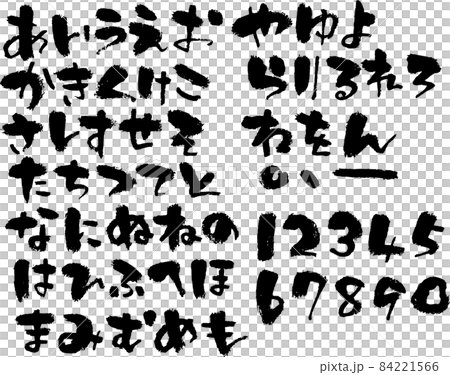 あいうえお
かきくけこ
さしすせそ
たちつてと
なにぬねの
はひふへほ
まみむめも
やゆよ
らりるれろ
わをん
。、ー
12345
67890
PIXTA
pixta.jp - 84221566